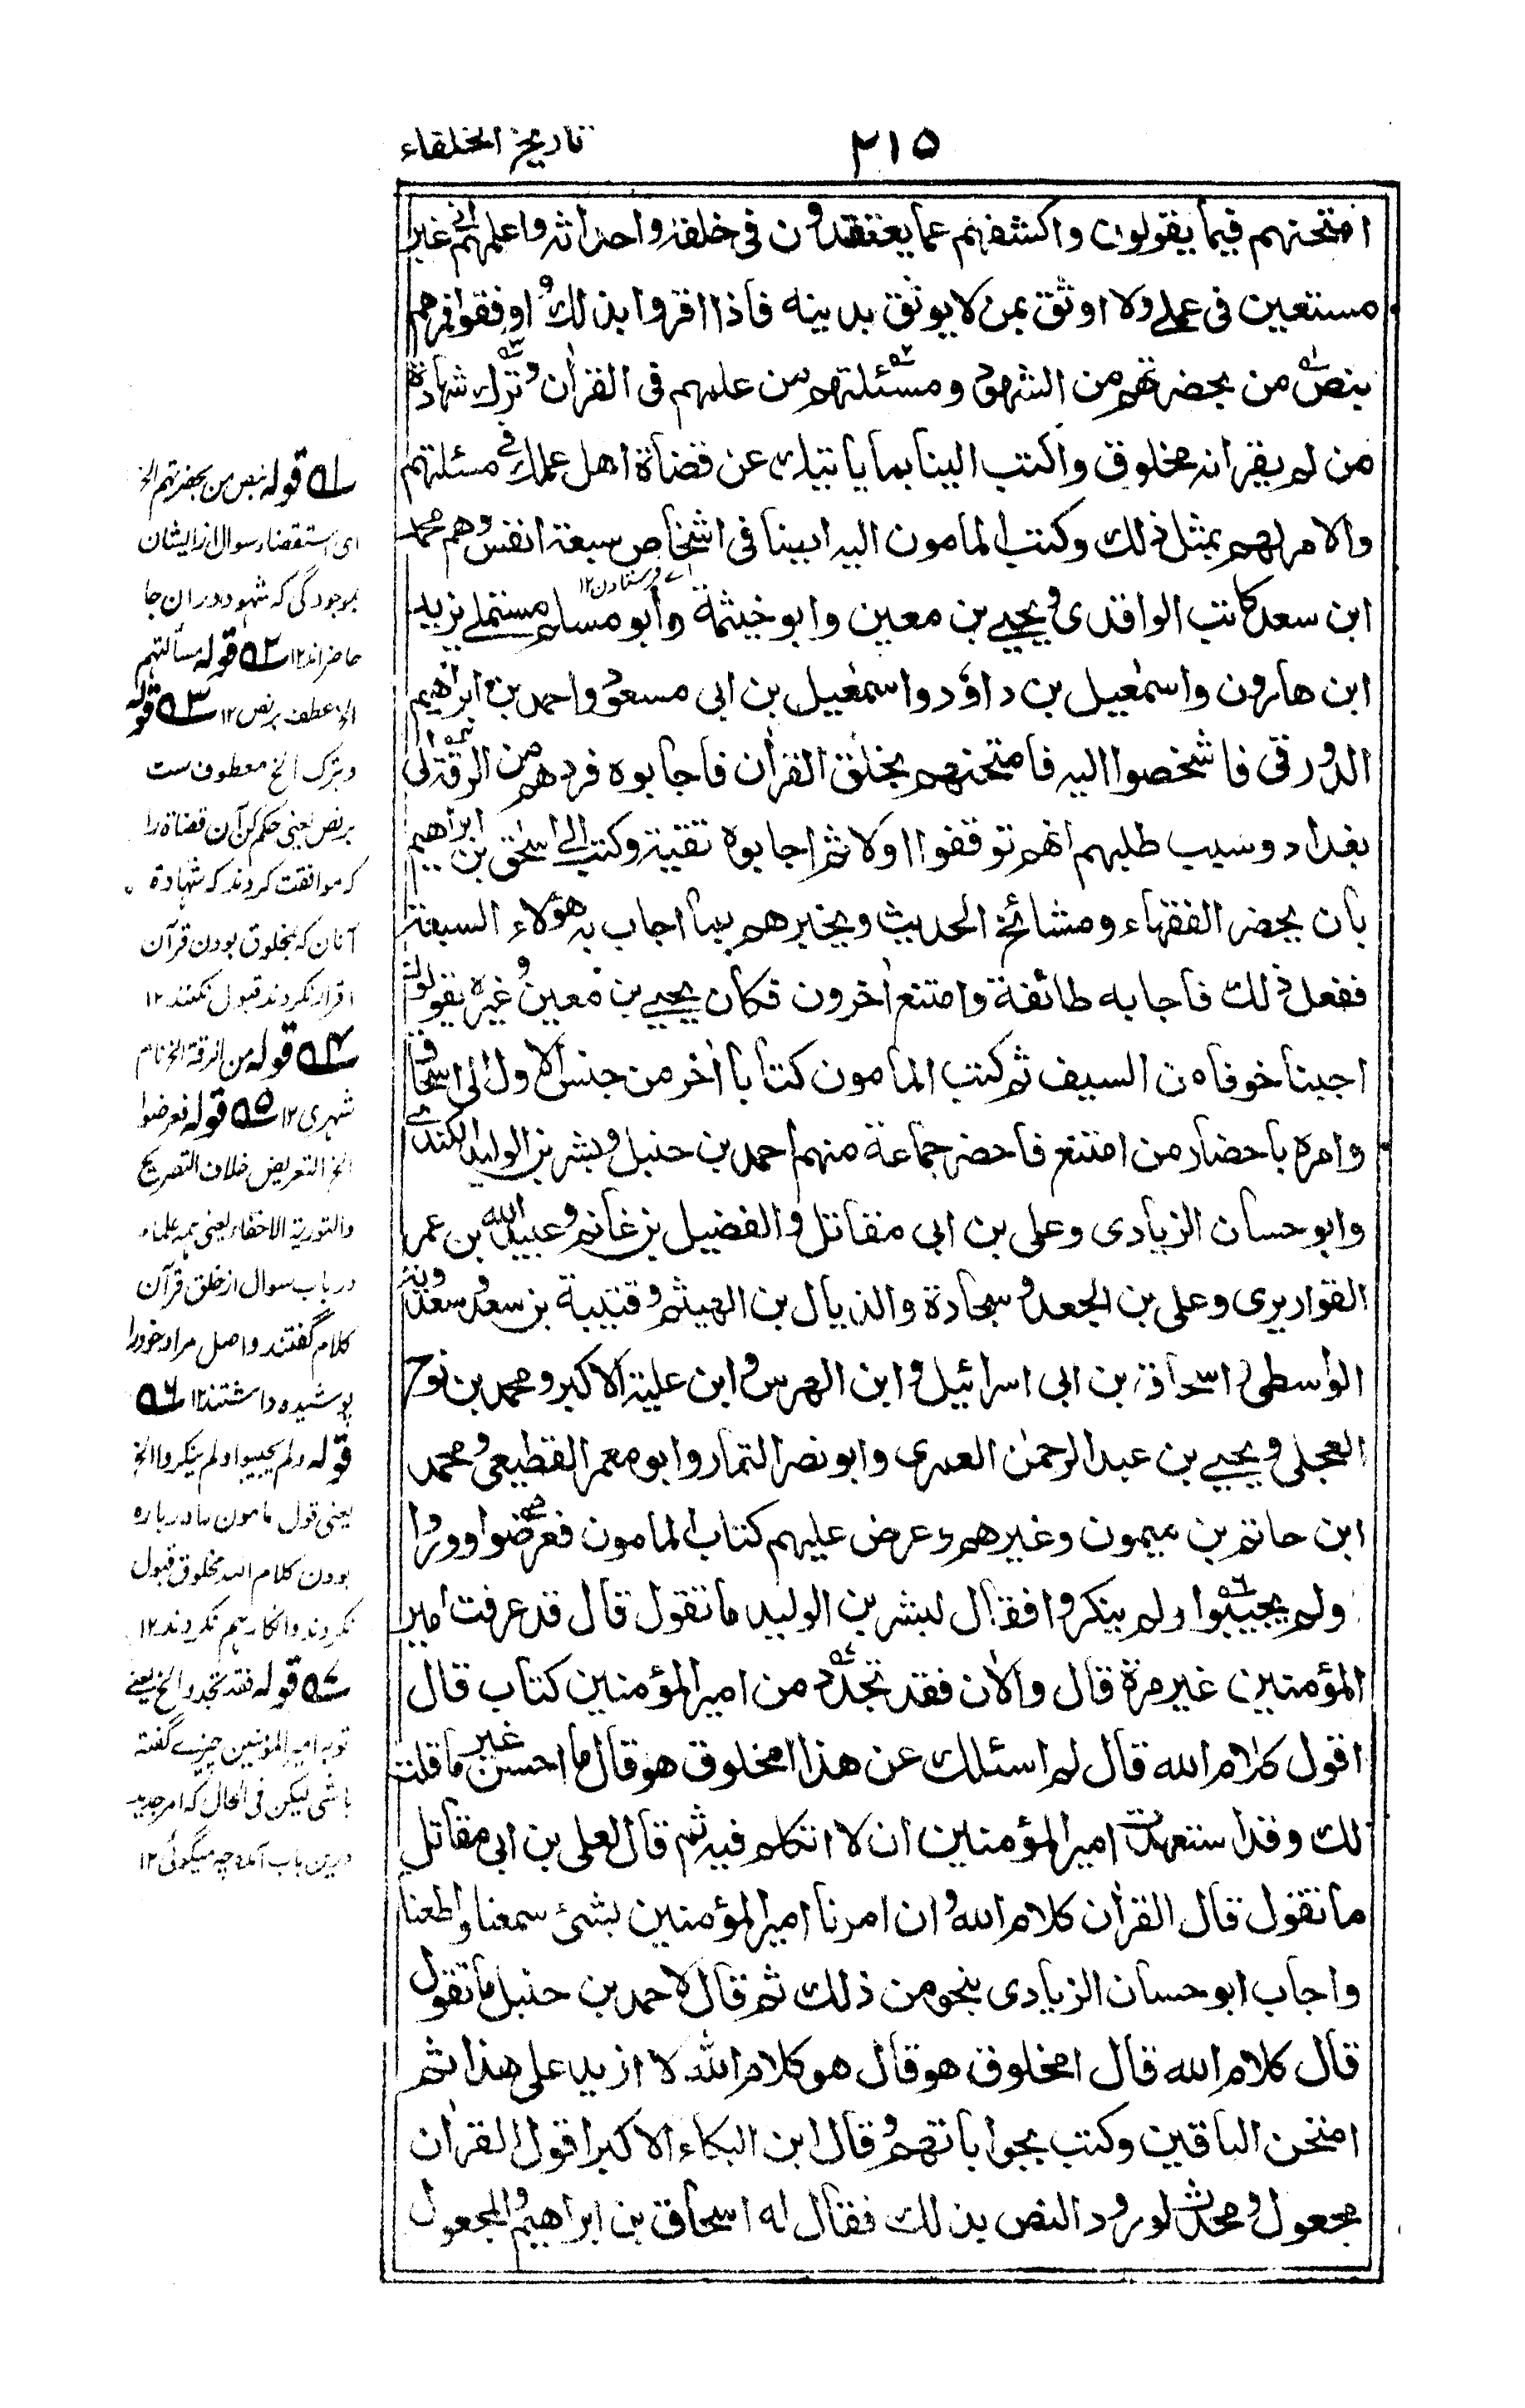 ٢١٥
تاريخ الخلفاء
امتحنهم فيما يقولون واكشفهم عما يعتقدون فى خلقه واحداثه واعلمهم انى غير
مستعين فى عملى ولا اوثق بمن لا يوثق بدينه فاذا اقروا بذلك و اوفقوا فمرهم
بنص من بحضرتهم من الشهود ومسئلتهم عن علمهم فى القرآن وترك شهادة
من لم يقر انه مخلوق واكتب الينا بما ياتيك عن قضاة اهل عملك فى مسئلتهم
والامر لهم بمثل ذلك وكتب المامون اليه ايضا فى اشخاص سبعة انفس وهم محمد
اے فرستادن١٢
ابن سعد كاتب الواقدى ويحيے بن معين وابو خيثمة وابو مسلم مستملے يزيد
ابن هارون واسمعيل بن داؤد واسمعيل بن ابى مسعود واحمد بن ابراهيم
الدورقى فاشخصوا اليه فامتحنهم بخلق القرآن فاجابوه فردهم من الرقة الى
بغداد وسبب طلبهم انهم توقفوا اولا ثم اجابوه تقية وكتب الى اسحق بن ابراهيم
بان يحضر الفقهاء ومشائخ الحديث ويخبرهم بما اجاب به هؤلاء السبعة
ففعل ذلك فاجابه طائفة وامتنع اخرون فكان يحيے بن معين وغيره يقولون
اجبنا خوفا من السيف ثم كتب المامون كتابا اخر من جنس الاول الى اسحاق
وامره باحضار من امتنع فاحضر جماعة منهم احمد بن حنبل وبشر بن الوليد الكندى
وابو حسان الزيادى وعلى بن ابى مقاتل والفضيل بن غانم وعبيد الله بن عمر
القواريرى وعلى بن الجعد وسجادة والذيال بن الهيثم وقتيبة بن سعد وسعدويه
الواسطى واسحاق بن ابى اسرائيل وابن الهرس وابن علية الاكبر ومحمد بن نوح
العجلى ويحيے بن عبد الرحمن العمرى وابو نصر التمار وابو معمر القطيعى ومحمد
ابن حاتم بن ميمون وغيرهم وعرض عليهم كتاب المامون فعرضوا ووروا
ولم يجيبوا ولم ينكروا فقال لبشر بن الوليد ما تقول قال قد عرفت امير
المؤمنين غير مرة قال والآن فقد تجدد من امير المؤمنين كتاب قال
اقول كلام الله قال لم اسئلك عن هذا امخلوق هو قال ما احسن غير ما قلت
لك وقد استعهدت امير المؤمنين ان لا اتكلم فيه ثم قال لعلى بن ابى مقاتل
ما تقول قال القرآن كلام الله وان امرنا امير المؤمنين بشئ سمعنا واطعنا
واجاب ابو حسان الزيادى بنحو من ذلك ثم قال لاحمد بن حنبل ما تقول
قال كلام الله قال امخلوق هو قال هو كلام الله لا ازيد على هذا ثم
امتحن الباقين وكتب بجواباتهم وقال ابن البكاء الاكبر اقول القرآن
مجعول ومحدث لورود النص بذلك فقال له اسحاق بن ابراهيم والمجعول
١ قوله بنص من بحضرتهم الخ
اى استقصار سوال از ايشان
بموجودگى كہ شهود دران جا
حاضر اند١٢ ٢ قوله مسألتهم
الخ عطف بر نص ١٢ ٣ قوله
وبترك الخ معطوف ست
بر نص يعنى حكم كن آن قضاة را
كہ موافقت كردند كہ شهادة
آنان كہ بمخلوق بودن قرآن
اقرار نكردند قبول نكنند ١٢
٤ قوله من الرقة الخ نام
شهرى ١٢ ٥ قوله فعرضوا
الخ التعريض خلاف التصريح
والتورية الاخفاء يعنى همہ علماء
در باب سوال از خلق قرآن
كلام گفتند واصل مراد خود را
پوشيده داشتند ١٢ ٦
قوله ولم يجيبوا ولم ينكروا الخ
يعنى قول مامون را درباره
بودن كلام الله مخلوق قبول
نكردند وانكار هم نكردند ١٢
٧ قوله فقد تجدد الخ يعنے
تو بہ امير المؤمنين چيزے گفتہ
باشى ليكن فى الحال كہ امر جديد
درين باب آمده چہ ميگوئى ١٢